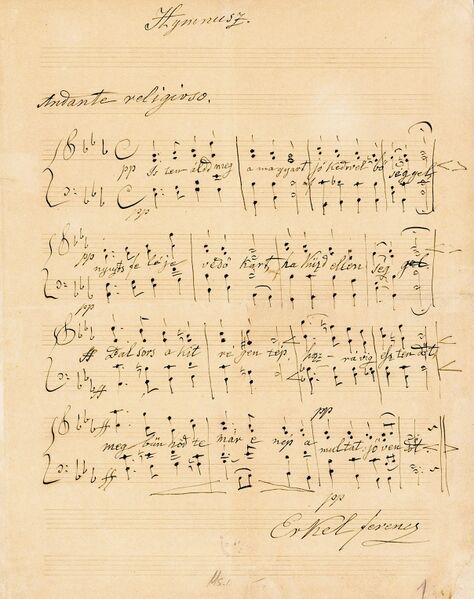 Hymnusz.
Andante religioso.
pp Isten áldd meg a magyart jó kedvvel bő séggel
pp
pp nyujts fe léje védő kart, ha küzd ellen seg gel
pp
ff Bal sors a kit régen tép, hoz - rá víg esz ten dőt
ff
pp
ff meg bűn hőd te már e nép a multat jöven dőt.
ff
pp
Erkel Ferencz
Ms.
1